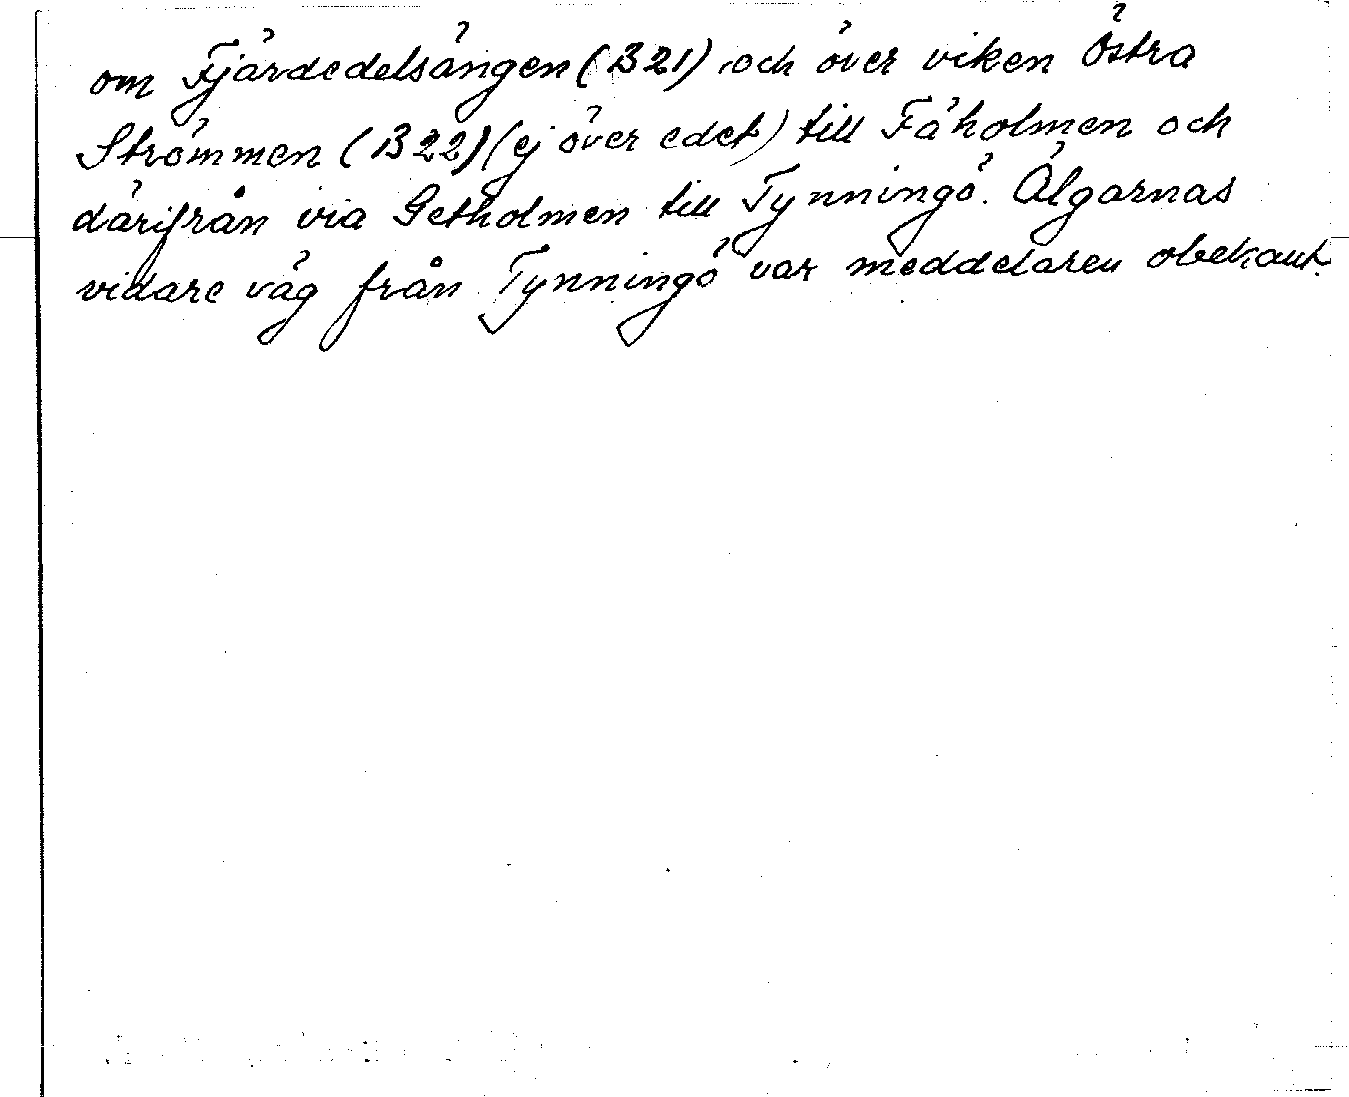 om Fjärdedelsängen (B21) och över viken Östra
Strömmen (B22) (ej över edet) till Fåholmen och
därifrån via Getholmen till Tynningö. Älgarnas
vidare väg från Tynningö var meddelaren obekant.